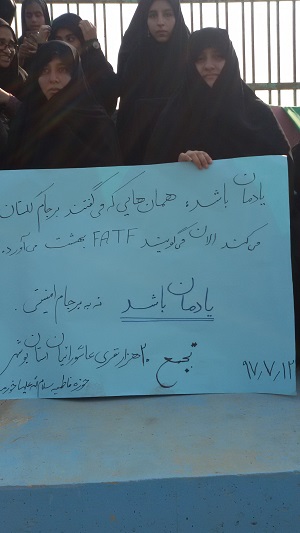 یادمان باشد، همان‌هایی که می‌گفتند برجام گلستان
می‌کند الان می‌گویند FATF بهشت می‌آورد.
یادمان باشد نه به برجام امنیتی.
تجمع ۲۰ هزار نفری عاشورائیان استان بوشهر
۹۷٫۷٫۱۲
حوزه فاطمیه سلام الله علیها خورموج